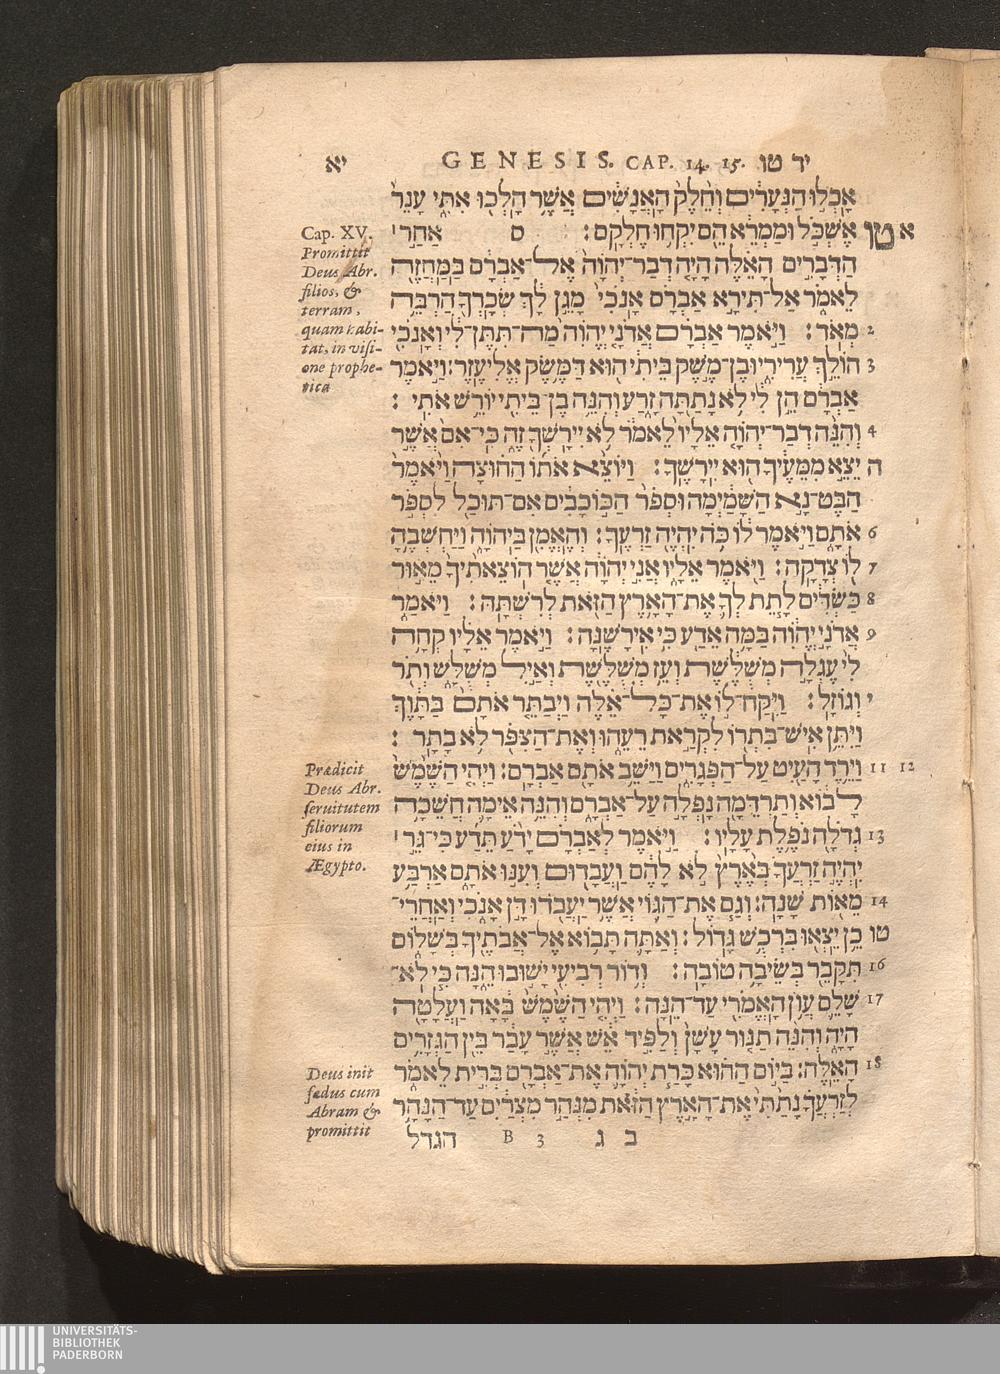 יא GENESIS. CAP. 14. 15. יד טו
אָכְלוּ הַנְּעָרִים וְחֵלֶק הָאֲנָשִׁים אֲשֶׁר הָלְכוּ אִתִּי עָנֵר
א טו אֶשְׁכֹּל וּמַמְרֵא הֵם יִקְחוּ חֶלְקָם׃ ס אַחַר׀
הַדְּבָרִים הָאֵלֶּה הָיָה דְבַר־יְהוָה אֶל־אַבְרָם בַּמַּחֲזֶה
לֵאמֹר אַל־תִּירָא אַבְרָם אָנֹכִי מָגֵן לָךְ שְׂכָרְךָ הַרְבֵּה
2 מְאֹד׃ וַיֹּאמֶר אַבְרָם אֲדֹנָי יֱהוִֹה מַה־תִּתֶּן־לִי וְאָנֹכִי
3 הוֹלֵךְ עֲרִירִי וּבֶן־מֶשֶׁק בֵּיתִי הוּא דַּמֶּשֶׂק אֱלִיעֶזֶר׃ וַיֹּאמֶר
אַבְרָם הֵן לִי לֹא נָתַתָּה זָרַע וְהִנֵּה בֶן־בֵּיתִי יוֹרֵשׁ אֹתִי׃
4 וְהִנֵּה דְבַר־יְהוָה אֵלָיו לֵאמֹר לֹא יִירָשְׁךָ זֶה כִּי־אִם אֲשֶׁר
ה יֵצֵא מִמֵּעֶיךָ הוּא יִירָשֶׁךָ׃ וַיּוֹצֵא אֹתוֹ הַחוּצָה וַיֹּאמֶר
הַבֶּט־נָא הַשָּׁמַיְמָה וּסְפֹר הַכּוֹכָבִים אִם־תּוּכַל לִסְפֹּר
6 אֹתָם וַיֹּאמֶר לוֹ כֹּה יִהְיֶה זַרְעֶךָ׃ וְהֶאֱמִן בַּיהוָה וַיַּחְשְׁבֶהָ
7 לּוֹ צְדָקָה׃ וַיֹּאמֶר אֵלָיו אֲנִי יְהוָה אֲשֶׁר הוֹצֵאתִיךָ מֵאוּר
8 כַּשְׂדִּים לָתֶת לְךָ אֶת־הָאָרֶץ הַזֹּאת לְרִשְׁתָּהּ׃ וַיֹּאמַר
9 אֲדֹנָי יֱהוִֹה בַּמָּה אֵדַע כִּי אִירָשֶׁנָּה׃ וַיֹּאמֶר אֵלָיו קְחָה
לִי עֶגְלָה מְשֻׁלֶּשֶׁת וְעֵז מְשֻׁלֶּשֶׁת וְאַיִל מְשֻׁלָּשׁ וְתֹר
י וְגוֹזָל׃ וַיִּקַּח־לוֹ אֶת־כָּל־אֵלֶּה וַיְבַתֵּר אֹתָם בַּתָּוֶךְ
וַיִּתֵּן אִישׁ־בִּתְרוֹ לִקְרַאת רֵעֵהוּ וְאֶת־הַצִּפֹּר לֹא בָתָר׃
11 12 וַיֵּרֶד הָעַיִט עַל־הַפְּגָרִים וַיַּשֵּׁב אֹתָם אַבְרָם׃ וַיְהִי הַשֶּׁמֶשׁ
לָבוֹא וְתַרְדֵּמָה נָפְלָה עַל־אַבְרָם וְהִנֵּה אֵימָה חֲשֵׁכָה
13 גְדֹלָה נֹפֶלֶת עָלָיו׃ וַיֹּאמֶר לְאַבְרָם יָדֹעַ תֵּדַע כִּי־גֵר׀
יִהְיֶה זַרְעֲךָ בְּאֶרֶץ לֹא לָהֶם וַעֲבָדוּם וְעִנּוּ אֹתָם אַרְבַּע
14 מֵאוֹת שָׁנָה׃ וְגַם אֶת־הַגּוֹי אֲשֶׁר יַעֲבֹדוּ דָּן אָנֹכִי וְאַחֲרֵי־
טו כֵן יֵצְאוּ בִּרְכֻשׁ גָּדוֹל׃ וְאַתָּה תָּבוֹא אֶל־אֲבֹתֶיךָ בְּשָׁלוֹם
16 תִּקָּבֵר בְּשֵׂיבָה טוֹבָה׃ וְדוֹר רְבִיעִי יָשׁוּבוּ הֵנָּה כִּי לֹא־
17 שָׁלֵם עֲוֺן הָאֱמֹרִי עַד־הֵנָּה׃ וַיְהִי הַשֶּׁמֶשׁ בָּאָה וַעֲלָטָה
הָיָה וְהִנֵּה תַנּוּר עָשָׁן וְלַפִּיד אֵשׁ אֲשֶׁר עָבַר בֵּין הַגְּזָרִים
18 הָאֵלֶּה׃ בַּיּוֹם הַהוּא כָּרַת יְהוָה אֶת־אַבְרָם בְּרִית לֵאמֹר
לְזַרְעֲךָ נָתַתִּי אֶת־הָאָרֶץ הַזֹּאת מִנְּהַר מִצְרַיִם עַד־הַנָּהָר
ב ג B 3 הגדל
Cap. XV.
Promittit
Deus Abr.
filios, &
terram,
quam habi-
tat, in visi-
one prophe-
tica
Prædicit
Deus Abr.
servitutem
filiorum
eius in
Ægypto.
Deus init
fœdus cum
Abram &
promittit
UNIVERSITÄTS-
BIBLIOTHEK
PADERBORN